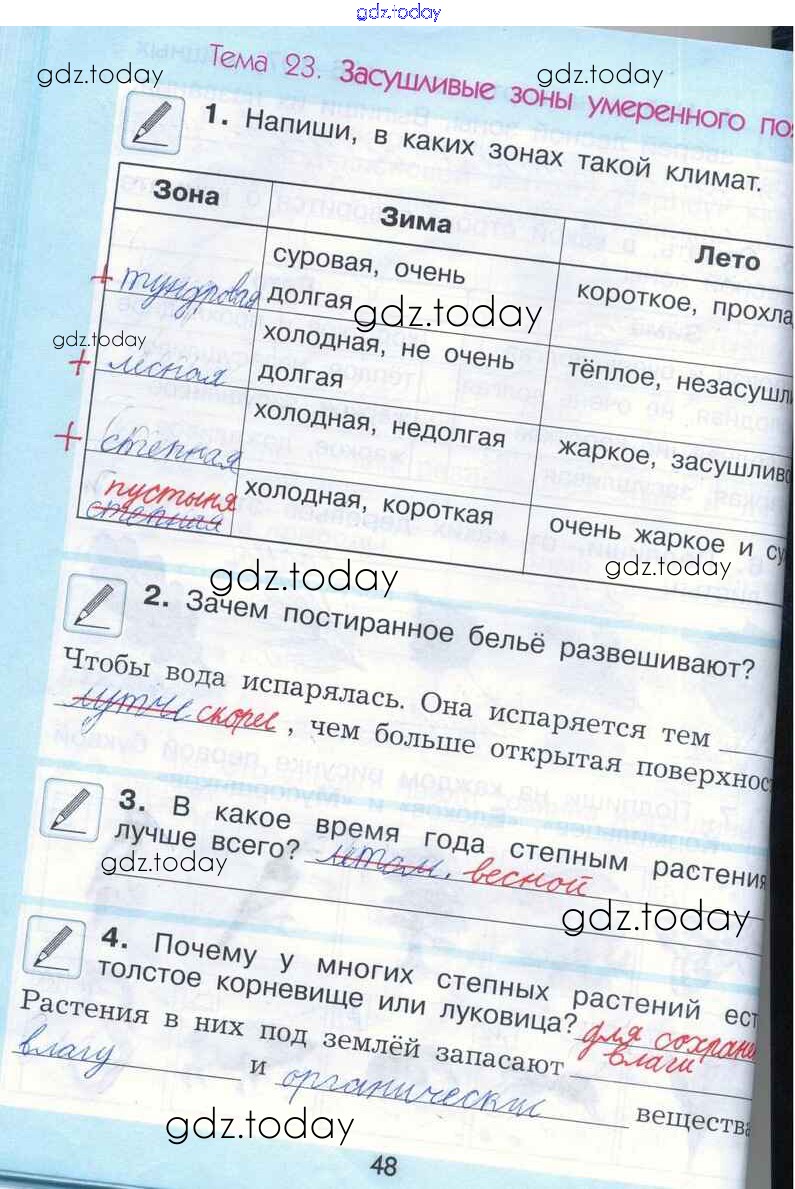 gdz.today
Тема 23. Засушливые зоны умеренного поя
gdz.today gdz.today
1. Напиши, в каких зонах такой климат.
Зона Зима Лето
+ тундровая суровая, очень долгая короткое, прохла
gdz.today
gdz.today
+ лесная холодная, не очень долгая тёплое, незасушли
+ степная холодная, недолгая жаркое, засушливо
пустыня
степная холодная, короткая очень жаркое и су
gdz.today gdz.today
2. Зачем постиранное бельё развешивают?
Чтобы вода испарялась. Она испаряется тем
скорее, чем больше открытая поверхност
3. В какое время года степным растения
лучше всего? летом, весной
gdz.today
gdz.today
4. Почему у многих степных растений ест
толстое корневище или луковица? для сохране
Растения в них под землёй запасают влаги
влагу и органические вещества
gdz.today
48